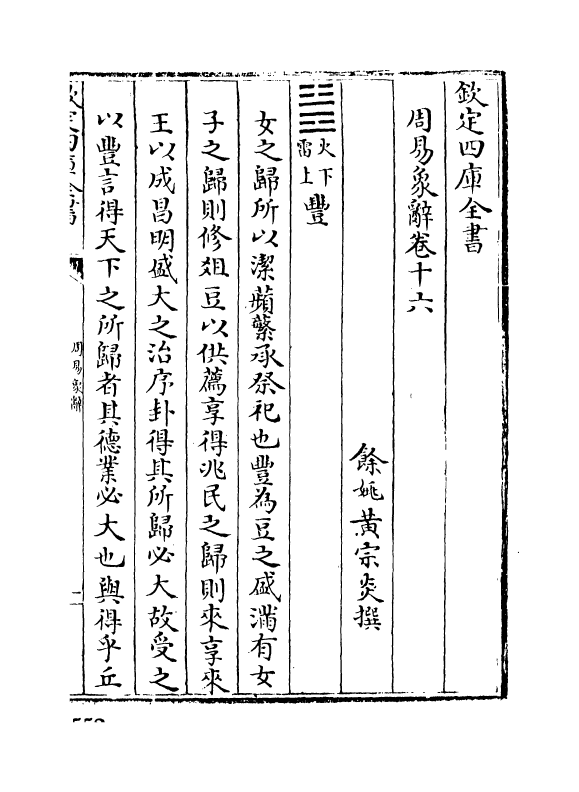 欽定四庫全書
周易象辭卷十六
餘姚黃宗炎撰
火下
雷上
豐
女之歸所以潔蘋蘩承祭祀也豐為豆之盛滿有女
子之歸則修俎豆以供薦享得兆民之歸則來享來
王以成昌明盛大之治序卦得其所歸必大故受之
以豐言得天下之所歸者其德業必大也與得乎丘
周易象辭